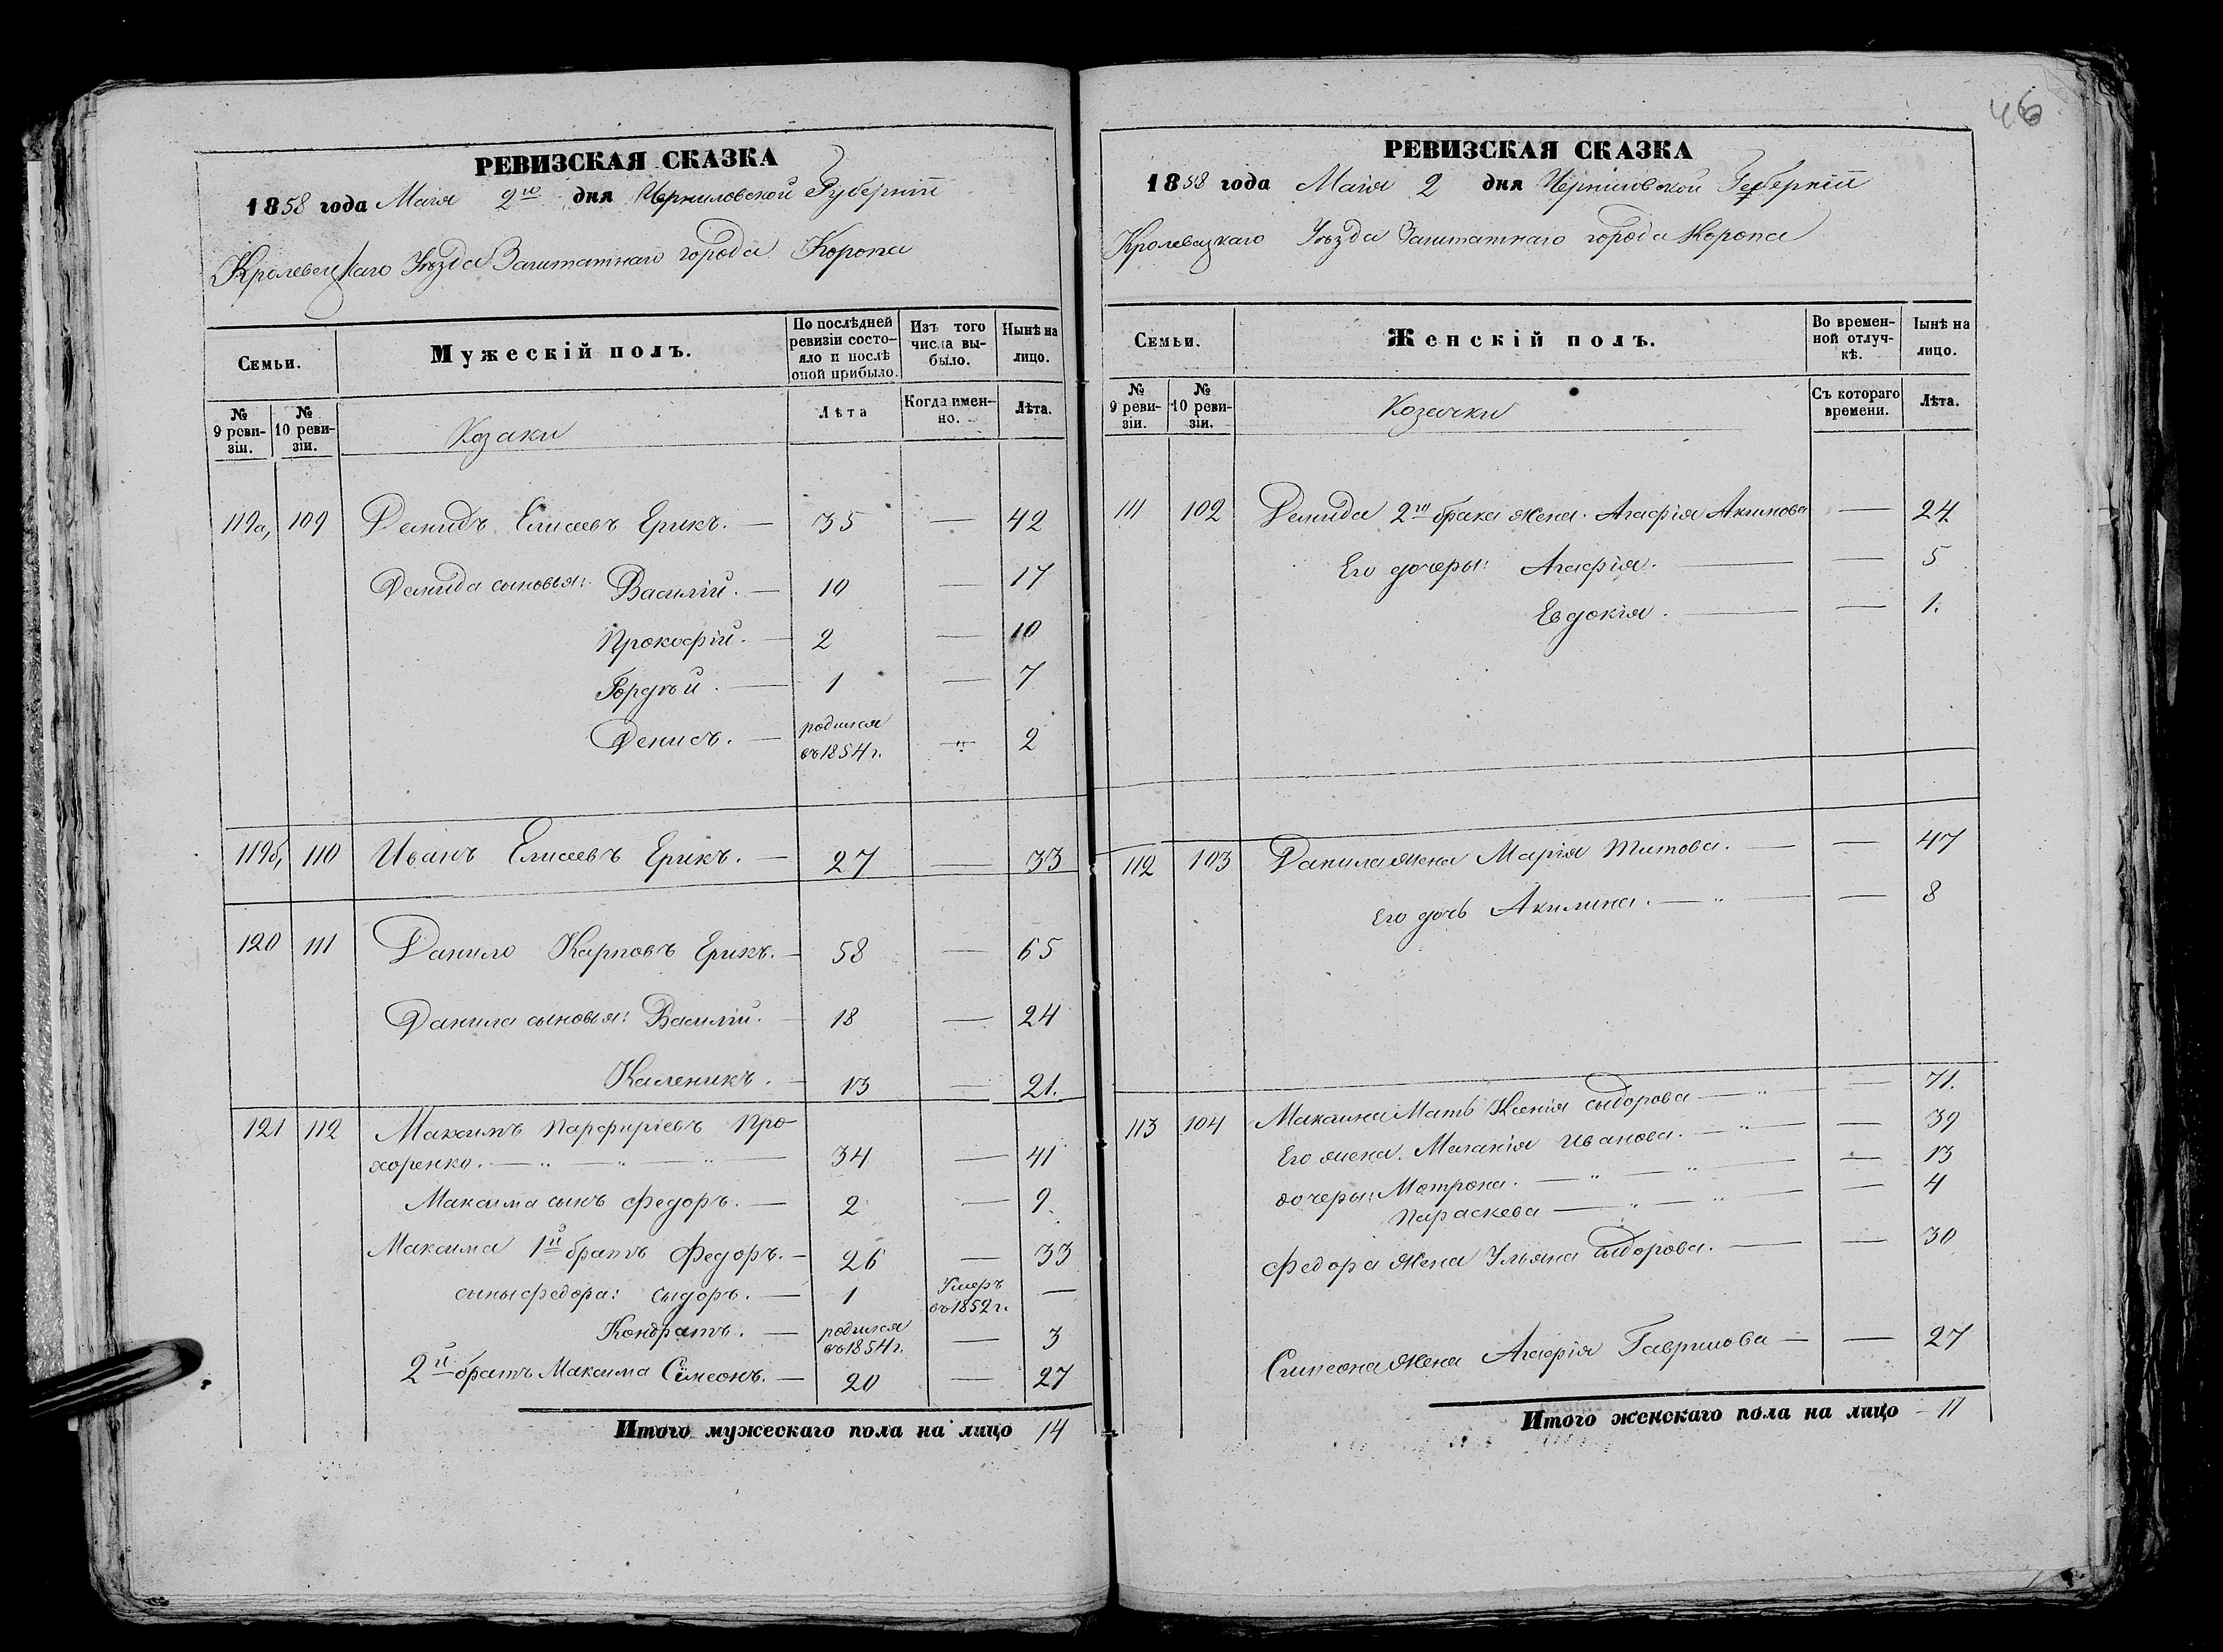 46
РЕВИЗСКАЯ СКАЗКА
1858 года Маія 2го дня Черниговской Губерніи
Кролевецкаго Уѣзда Заштатнаго города Коропа
Семьи.
Мужескій полъ.
По послѣдней ревизіи состо-
яло и послѣ
оной прибыло.
Изъ того
числа вы-
было.
Нынѣ на
лицо.
№
9 реви-
зіи.
№
10 реви-
зіи.
Козаки
Лѣта
Когда имен-
но.
Лѣта.
119а, 109 Демидъ Елисеевъ Ерикъ. — 35 — 42
Демида сыновья: Василій. — 10 — 17
Прокофій. — 2 — 10
Гордѣй. — 1 — 7
Денисъ. — родился
въ 1854 г. — " 2
119б, 110 Иванъ Елисеевъ Ерикъ. — 27 — 33
120 111 Данило Карповъ Ерикъ. — 58 — 65
Данила сыновья: Василій. — 18 — 24
Каленикъ. — 13 — 21.
121 112 Максимъ Парфиріевъ Про-
хоренко. — " — " — " — 34 — 41
Максима сынъ Федоръ. — 2 — 9
Максима 1й братъ Федоръ. — 26 — 33
сыны Федора: Сыдоръ. — 1 Умеръ
въ 1852 г. —
Кондратъ. — родился
въ 1854 г. — 3
2й братъ Максима Симеонъ. — 20 — 27
Итого мужескаго пола на лицо 14
РЕВИЗСКАЯ СКАЗКА
1858 года Маія 2 дня Черниговской Губерніи
Кролевецкаго Уѣзда Заштатнаго города Коропа
Семьи.
Женскій полъ.
Во времен-
ной отлуч-
кѣ.
Нынѣ на
лицо.
№
9 реви-
зіи.
№
10 реви-
зіи.
Козачки
Съ котораго
времени.
Лѣта.
111 102 Демида 2го брака жена. Агафія Акимова — 24
Его дочеры: Агафія. — — 5
Евдокія. — — 1.
112 103 Данила жена Марія Титова. — — 47
Его дочь Акилина. — " — — 8
113 104 Максима Мать Ксенія Сыдорова — " — 71.
Его жена. Маланія Иванова. — " — — 39
дочеры: Мотрона. — " — " — — 13
Параскева — " — " — — 4
Федора жена Ульяна Сыдорова. — — 30
Симеона жена Агафія Гаврилова — — 27
Итого женскаго пола на лицо — 11